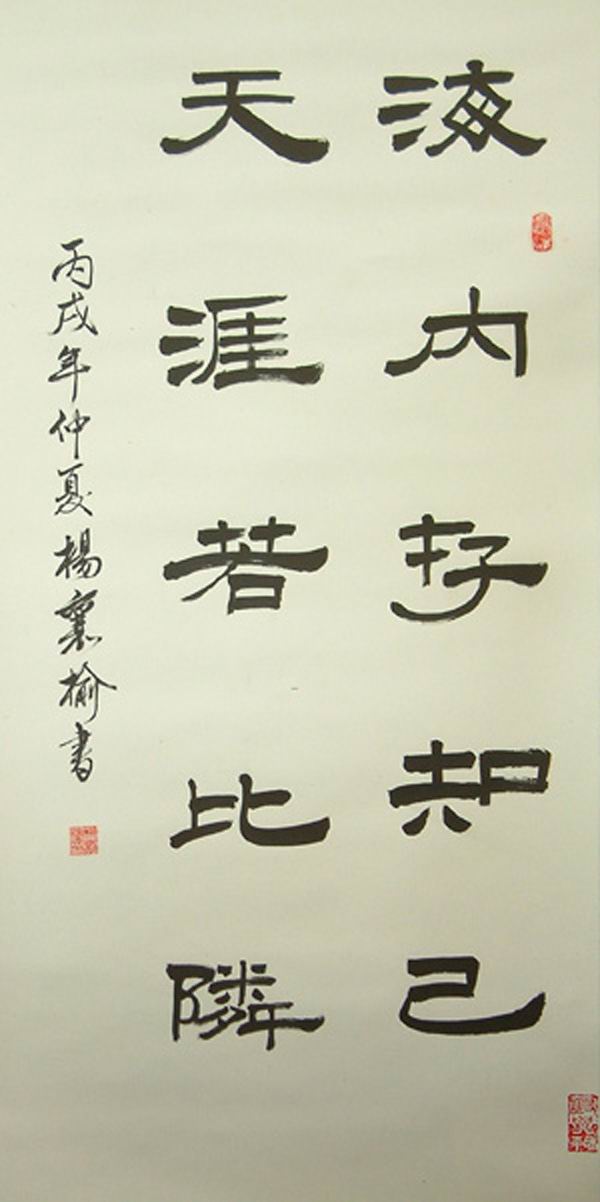 海内存知己
天涯若比隣
丙戌年仲夏楊襄榆書